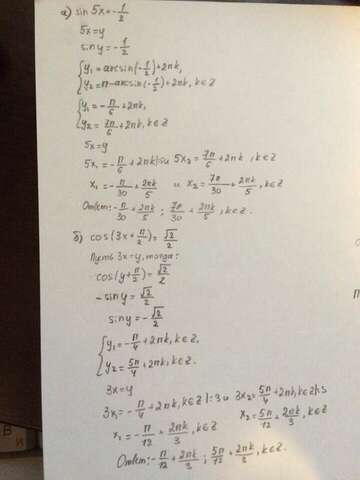 а) sin 5x = -1/2
5x = y
sin y = -1/2
{ y₁ = arcsin(-1/2) + 2πk,
y₂ = π - arcsin(-1/2) + 2πk, k∈Z
{ y₁ = -π/6 + 2πk,
y₂ = 7π/6 + 2πk, k∈Z
5x = y
5x₁ = -π/6 + 2πk |:5 и 5x₂ = 7π/6 + 2πk, k∈Z
x₁ = -π/30 + 2πk/5 и x₂ = 7π/30 + 2πk/5, k∈Z
Ответ: -π/30 + 2πk/5 ; 7π/30 + 2πk/5, k∈Z.
б) cos(3x + π/2) = √2/2
Пусть 3x = y, тогда:
cos(y + π/2) = √2/2
- sin y = √2/2
sin y = -√2/2
{ y₁ = -π/4 + 2πk, k∈Z,
y₂ = 5π/4 + 2πk, k∈Z.
3x = y
3x₁ = -π/4 + 2πk, k∈Z |:3 и 3x₂ = 5π/4 + 2πk, k∈Z |:3
x₁ = -π/12 + 2πk/3, k∈Z x₂ = 5π/12 + 2πk/3, k∈Z
Ответ: -π/12 + 2πk/3 ; 5π/12 + 2πk/3, k∈Z.